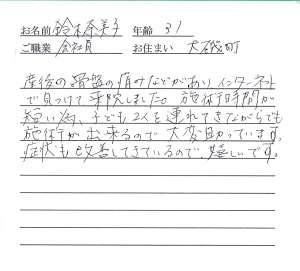 お名前 鈴木奈美子 年齢 31
ご職業 会社員 お住まい 大磯町
産後の骨盤の痛みなどがあり、インターネット
で見つけて来院しました。施術時間が
短い為、子ども2人を連れてきながらでも
施術が出来るので大変助っています。
症状も改善してきているので、嬉しいです。